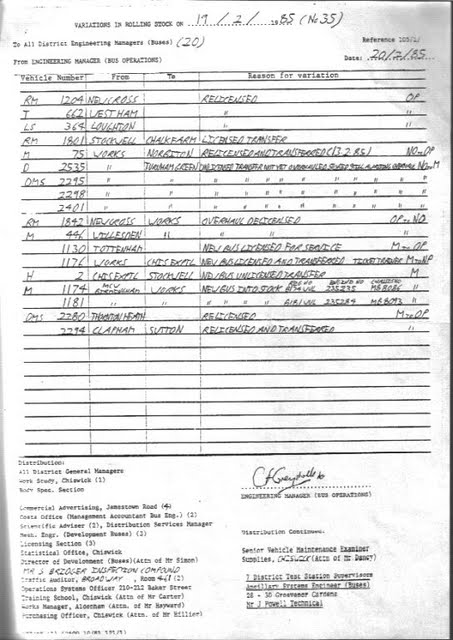 VARIATIONS IN ROLLING STOCK ON 19/2/1985 (No 35)
To All District Engineering Managers (Buses) (20)
Reference 105/1/
From ENGINEERING MANAGER (BUS OPERATIONS)
Date: 20/2/85.
Vehicle Number From To Reason for variation
RM 1204 NEWCROSS RELICENSED OP
T 662 WESTHAM " "
LS 364 LOUGHTON " "
RM 1801 STOCKWELL CHALKFARM LICENSED TRANSFER
M 75 WORKS NORBITON RELICENSED AND TRANSFERRED (13.2.85) NO to OP
D 2535 " TURNHAM GREEN UNLICENSED TRANSFER NOT YET OVERHAULED
DMS 2295 " " " " " "
2298 " " " " " "
2401 " " " " " "
RM 1842 NEWCROSS WORKS OVERHAUL DELICENSED OP to NO
M 446 WILLESDEN " " "
1130 TOTTENHAM NEW BUS LICENSED FOR SERVICE M to OP
1176 WORKS CHIS EXPTL NEW BUS LICENSED AND TRANSFERRED TICKET TRAINER M to NP
H 2 CHIS EXPTL STOCKWELL NEW BUS UNLICENSED TRANSFER M
M 1174 MCW BIRMINGHAM WORKS NEW BUS INTO STOCK 235235
1181 " " " " " " 235284 "
DMS 2280 THORNTON HEATH RELICENSED M to OP
2294 CLAPHAM SUTTON RELICENSED AND TRANSFERRED "
ENGINEERING MANAGER (BUS OPERATIONS)
Distribution:
All District General Managers
Work Study, Chiswick (1)
Body Spec. Section
Commercial Advertising, Jamestown Road (4)
Costs Office (Management Accountant Bus Eng.) (2)
Scientific Adviser (2), Distribution Services Manager
Mech. Engr. (Development Buses) (2)
Licensing Section (3)
Statistical Office, Chiswick
Director of Development (Buses)(Attn of Mr Simon)
MR S BRIDGER INSPECTION COMPOUND
Traffic Auditor, BROADWAY, Room 461 (2)
Operations Systems Officer 210-212 Baker Street
Training School, Chiswick (Attn of Mr Carter)
Works Manager, Aldenham (Attn. of Mr Hayward)
Purchasing Officer, Chiswick (Attn. of Mr Hillier)
Distribution Continued.
Senior Vehicle Maintenance Examiner
Supplies, CHISWICK (Attn of Mr Dancy)
7 District Test Station Supervisors
Ancillary Systems Engineer (Buses)
28 - 30 Grosvenor Gardens
Mr J Powell Technical